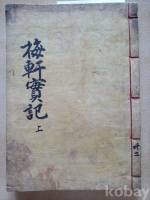 梅軒實記
上
kobay